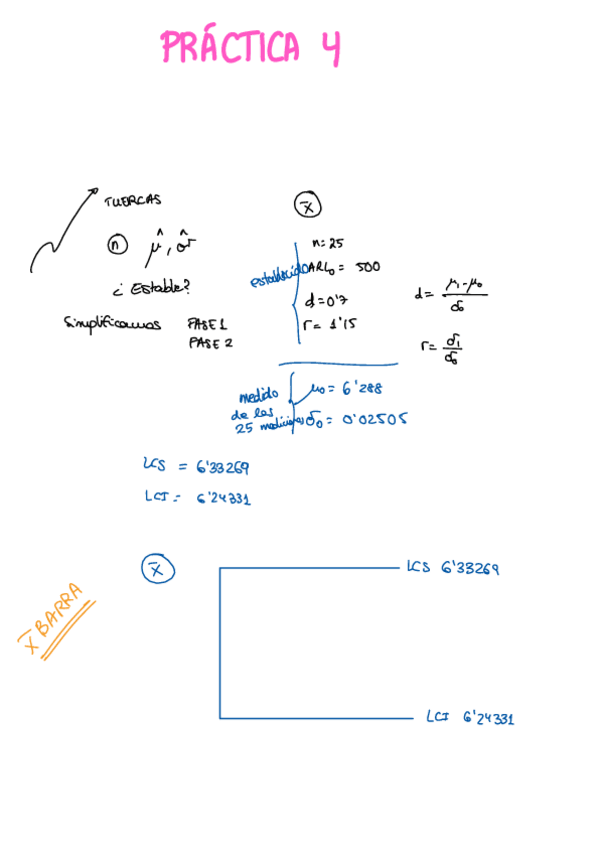 PRÁCTICA 4
TUERCAS
n μ̂, σ̂
¿ Estable?
Simplificamos FASE 1
FASE 2
x̄
establecido
n = 25
ARL₀ = 500
d = 0'7
r = 1'15
d = μ₁ - μ₀ / σ₀
r = σ₁ / σ₀
medido
de las
25 mediciones
μ₀ = 6'288
σ₀ = 0'02505
LCS = 6'33269
LCI = 6'24331
x̄ BARRA
x̄
LCS 6'33269
LCI 6'24331